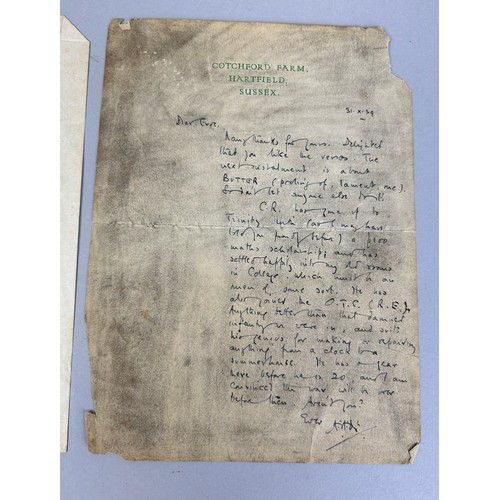 COTCHFORD FARM,
HARTFIELD,
SUSSEX.
31-X-39
Dear
Many thanks for yours. Delighted
that you like the verses. The
next instalment is about
BUTTER
So don't let anyone else
C.R. has gone up to
Trinity, with (as I may have
told you before) a £100
maths scholarship; and has
settled happily into my old rooms
in College, which must be an
omen of some sort. He has
also joined the O.T.C. (R.E.),
Anything better than that damned
infantry we were in, and suits
his genius for making or repairing
anything from a clock to a
summerhouse. He has a year
here before he is 20, and I am
convinced the war will be over
before then. Aren't you?
Ever A.A.M.